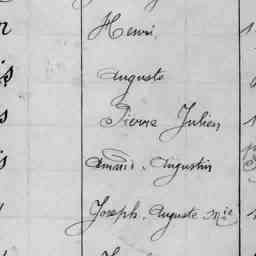 Henri,
Auguste
Pierre Julien
Amand, Augustin
Joseph, Auguste Mie